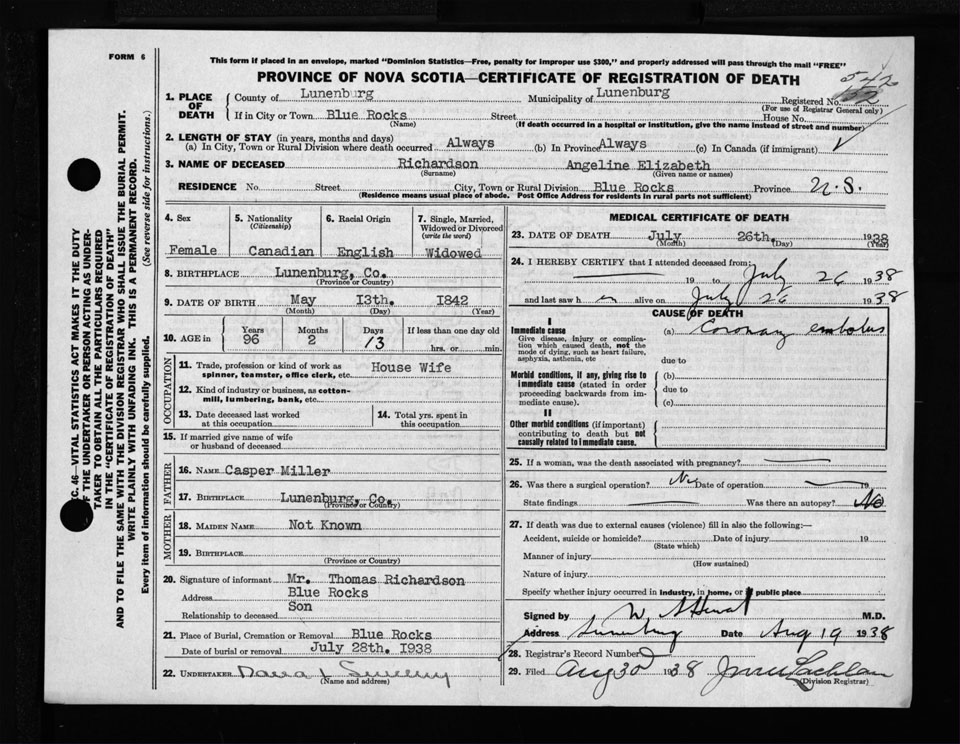 FORM 6
This form if placed in an envelope, marked "Dominion Statistics—Free, penalty for improper use $300," and properly addressed will pass through the mail "FREE"
PROVINCE OF NOVA SCOTIA—CERTIFICATE OF REGISTRATION OF DEATH
1. PLACE OF DEATH County of Lunenburg Municipality of Lunenburg Registered No.
(For use of Registrar General only)
If in City or Town Blue Rocks Street House No.
(Name) (If death occurred in a hospital or institution, give the name instead of street and number)
2. LENGTH OF STAY (in years, months and days)
(a) In City, Town or Rural Division where death occurred Always (b) In Province Always (c) In Canada (if immigrant)
3. NAME OF DECEASED Richardson Angeline Elizabeth
(Surname) (Given name or names)
RESIDENCE No. Street City, Town or Rural Division Blue Rocks Province N.S.
(Residence means usual place of abode. Post Office Address for residents in rural parts not sufficient)
4. Sex 5. Nationality (Citizenship) 6. Racial Origin 7. Single, Married, Widowed or Divorced (write the word)
Female Canadian English Widowed
8. BIRTHPLACE Lunenburg, Co.
(Province or Country)
9. DATE OF BIRTH May I3th. I842
(Month) (Day) (Year)
10. AGE in Years Months Days If less than one day old
96 2 13 hrs. or min.
OCCUPATION
11. Trade, profession or kind of work as spinner, teamster, office clerk, etc. House Wife
12. Kind of industry or business, as cotton-mill, lumbering, bank, etc.
13. Date deceased last worked at this occupation
14. Total yrs. spent in this occupation
15. If married give name of wife or husband of deceased
FATHER
16. NAME Casper Miller
17. BIRTHPLACE Lunenburg, Co.
(Province or Country)
MOTHER
18. MAIDEN NAME Not Known
19. BIRTHPLACE
(Province or Country)
20. Signature of informant Mr. Thomas Richardson
Address Blue Rocks
Relationship to deceased Son
21. Place of Burial, Cremation or Removal Blue Rocks
Date of burial or removal July 28th. I938
22. UNDERTAKER
(Name and address)
MEDICAL CERTIFICATE OF DEATH
23. DATE OF DEATH July 26th. 1938
(Month) (Day) (Year)
24. I HEREBY CERTIFY that I attended deceased from:
19 to July 26 1938
and last saw h er alive on July 26 1938
CAUSE OF DEATH
I
Immediate cause (a) Coronary embolus
Give disease, injury or complication which caused death, not the mode of dying, such as heart failure, asphyxia, asthenia, etc
due to
Morbid conditions, if any, giving rise to immediate cause (stated in order proceeding backwards from immediate cause).
(b)
due to
(c)
II
Other morbid conditions (if important) contributing to death but not causally related to immediate cause.
25. If a woman, was the death associated with pregnancy?
26. Was there a surgical operation? No Date of operation 19
State findings Was there an autopsy? No
27. If death was due to external causes (violence) fill in also the following:—
Accident, suicide or homicide? Date of injury 19
(State which)
Manner of injury
(How sustained)
Nature of injury
Specify whether injury occurred in industry, in home, or in public place
Signed by M.D.
Address Lunenburg Date Aug 19 1938
28. Registrar's Record Number
29. Filed Aug 30 1938
(Division Registrar)
SEC. 46—VITAL STATISTICS ACT MAKES IT THE DUTY
OF THE UNDERTAKER OR PERSON ACTING AS UNDER-
TAKER TO OBTAIN ALL THE PARTICULARS REQUIRED
IN THE "CERTIFICATE OF REGISTRATION OF DEATH"
AND TO FILE THE SAME WITH THE DIVISION REGISTRAR WHO SHALL ISSUE THE BURIAL PERMIT.
WRITE PLAINLY WITH UNFADING INK. THIS IS A PERMANENT RECORD.
Every item of information should be carefully supplied. (See reverse side for instructions.)